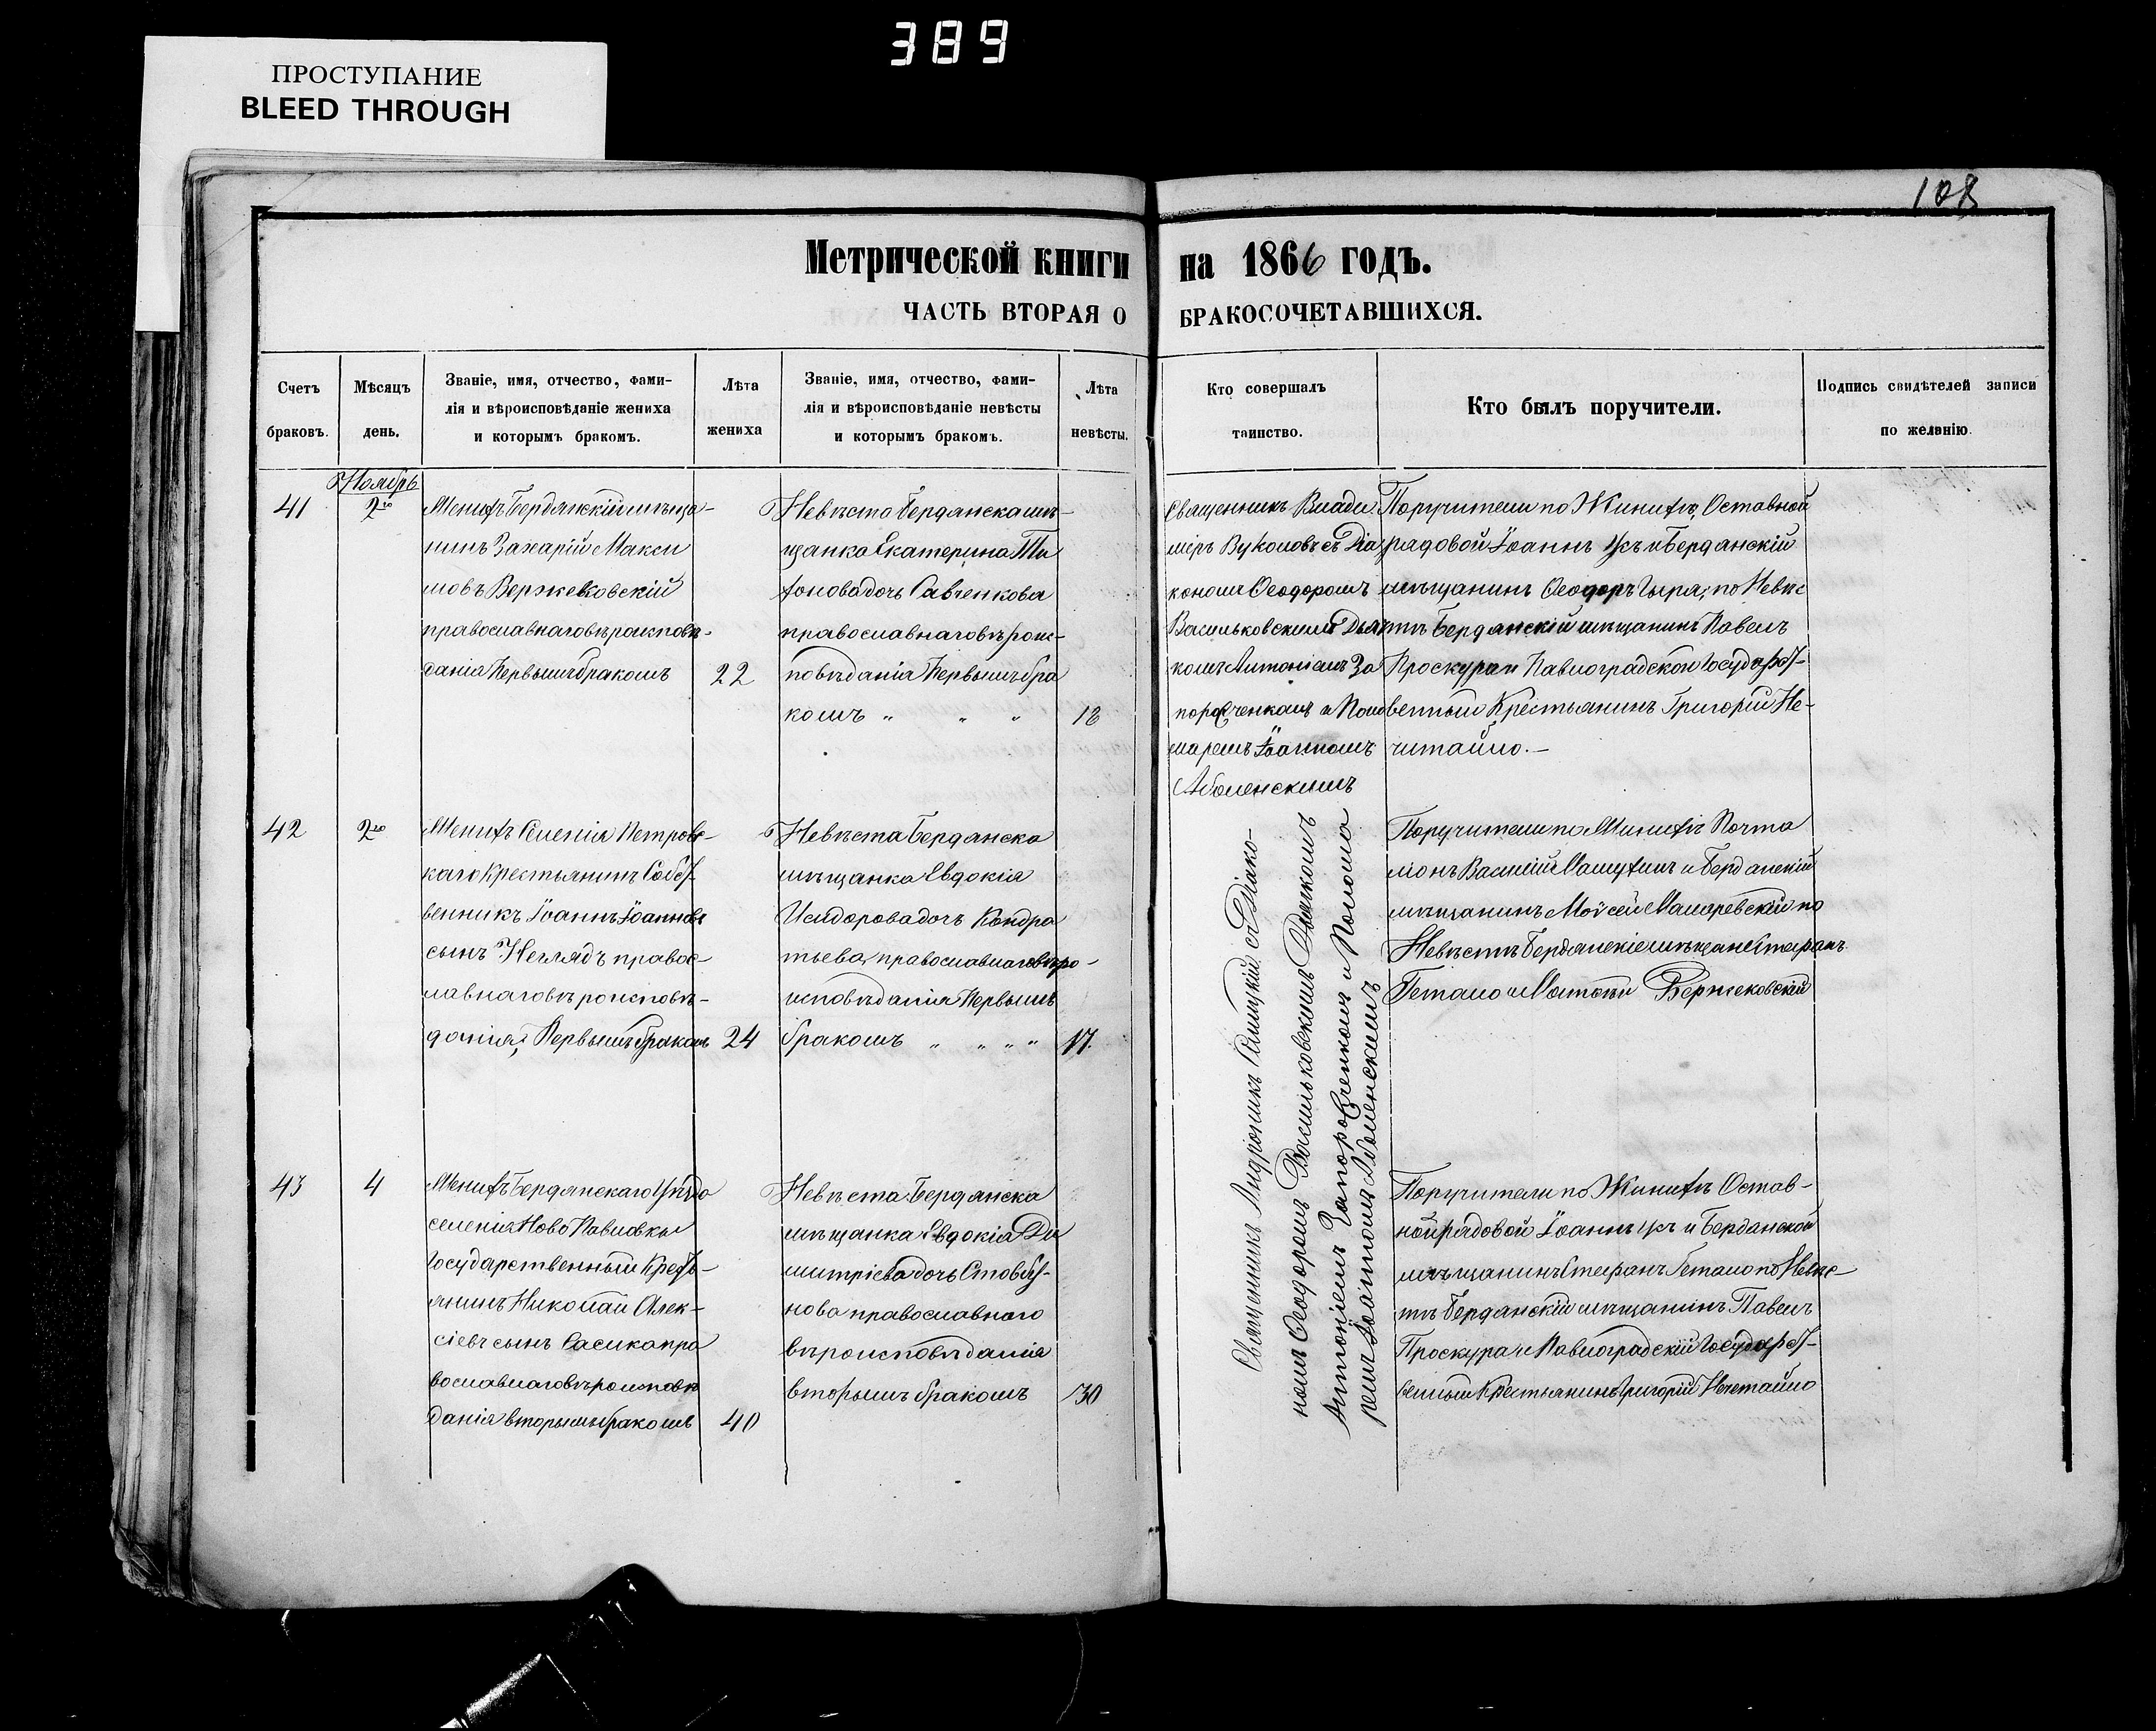 389
ПРОСТУПАНИЕ
BLEED THROUGH
108
Метрической книги на 1866 годъ.
ЧАСТЬ ВТОРАЯ О БРАКОСОЧЕТАВШИХСЯ.
Счетъ браковъ.
Мѣсяцъ день.
Званіе, имя, отчество, фами-
лія и вѣроисповѣданіе жениха
и которымъ бракомъ.
Лѣта жениха
Званіе, имя, отчество, фами-
лія и вѣроисповѣданіе невѣсты
и которымъ бракомъ.
Лѣта невѣсты.
Кто совершалъ
таинство.
Кто былъ поручители.
Подпись свидѣтелей записи
по желанію.
Ноябрь
41
2го
Женихъ Бердянскій мѣща-
нинъ Захарій Макси
мовъ Вержековскій
православнаго вѣроисповѣ-
данія Первымъ бракомъ
22
Невѣста Бердянска мѣ-
щанка Екатерина Ти
хонова дочь Савченкова
православнаго вѣроис-
повѣданія Первымъ бра
комъ " " "
18
Священникъ Влади
міръ Вуколовъ съ Діа
кономъ Ѳеодоромъ
Васильковскимъ Дьяч
комъ Антоніемъ За
порожченкомъ и Поно
маремъ Іоанномъ
Аболенскимъ
Поручители по Жинихѣ, Оставной
рядовой Іоаннъ Усъ и Бердянскій
мѣщанинъ Ѳеодоръ Чыра, по Невѣс
тѣ Бердянскій мѣщанинъ Павелъ
Проскура и Павлоградской Государст-
венный Крестьянинъ Григорій Не-
читайло.-
42
2го
Женихъ Селенія Петровс-
каго Крестьянинъ Собст-
венникъ Іоаннъ Іоанновъ
сынъ Неглядъ правос-
лавнаго вѣроисповѣ-
данія, Первымъ бракомъ
24
Невѣста Бердянска
мѣщанка Евдокія
Исидорова дочь Кондра
тьева, православнаго вѣро-
исповѣданія Первымъ
бракомъ " " " "
17.
Священникъ Андроникъ Савицкій съ Діако-
номъ Ѳеодоромъ Васильковскимъ Дьячкомъ
Антоніемъ Запорожченкомъ и Понома
ремъ Іоанномъ Аболенскимъ
Поручители по Жинихѣ Почта
ліонъ Василій и Бердянскій
мѣщанинъ Моѵсей по
Невѣстѣ Бердянскіе мѣщане Стефанъ
Гетало и Вержековскій
43
4
Женихъ Бердянскаго Уѣзда
селенія Ново Павловки
Государственный Кресть-
янинъ Николай Алек-
сіевъ сынъ Сасика пра
вославнаго вѣроисповѣ
данія вторымъ бракомъ
40
Невѣста Бердянска
мѣщанка Евдокія Ди
митріева дочь Столбу-
нова православнаго
вѣроисповѣданія
вторымъ бракомъ
30
Поручители по Жинихѣ Остав-
ной рядовой Іоаннъ Усъ и Бердянской
мѣщанинъ Стефанъ Гетало по Невѣс-
тѣ Бердянскій мѣщанинъ Павелъ
Проскура и Павлоградскій Государст-
венный Крестьянинъ Григорій Нечетайло